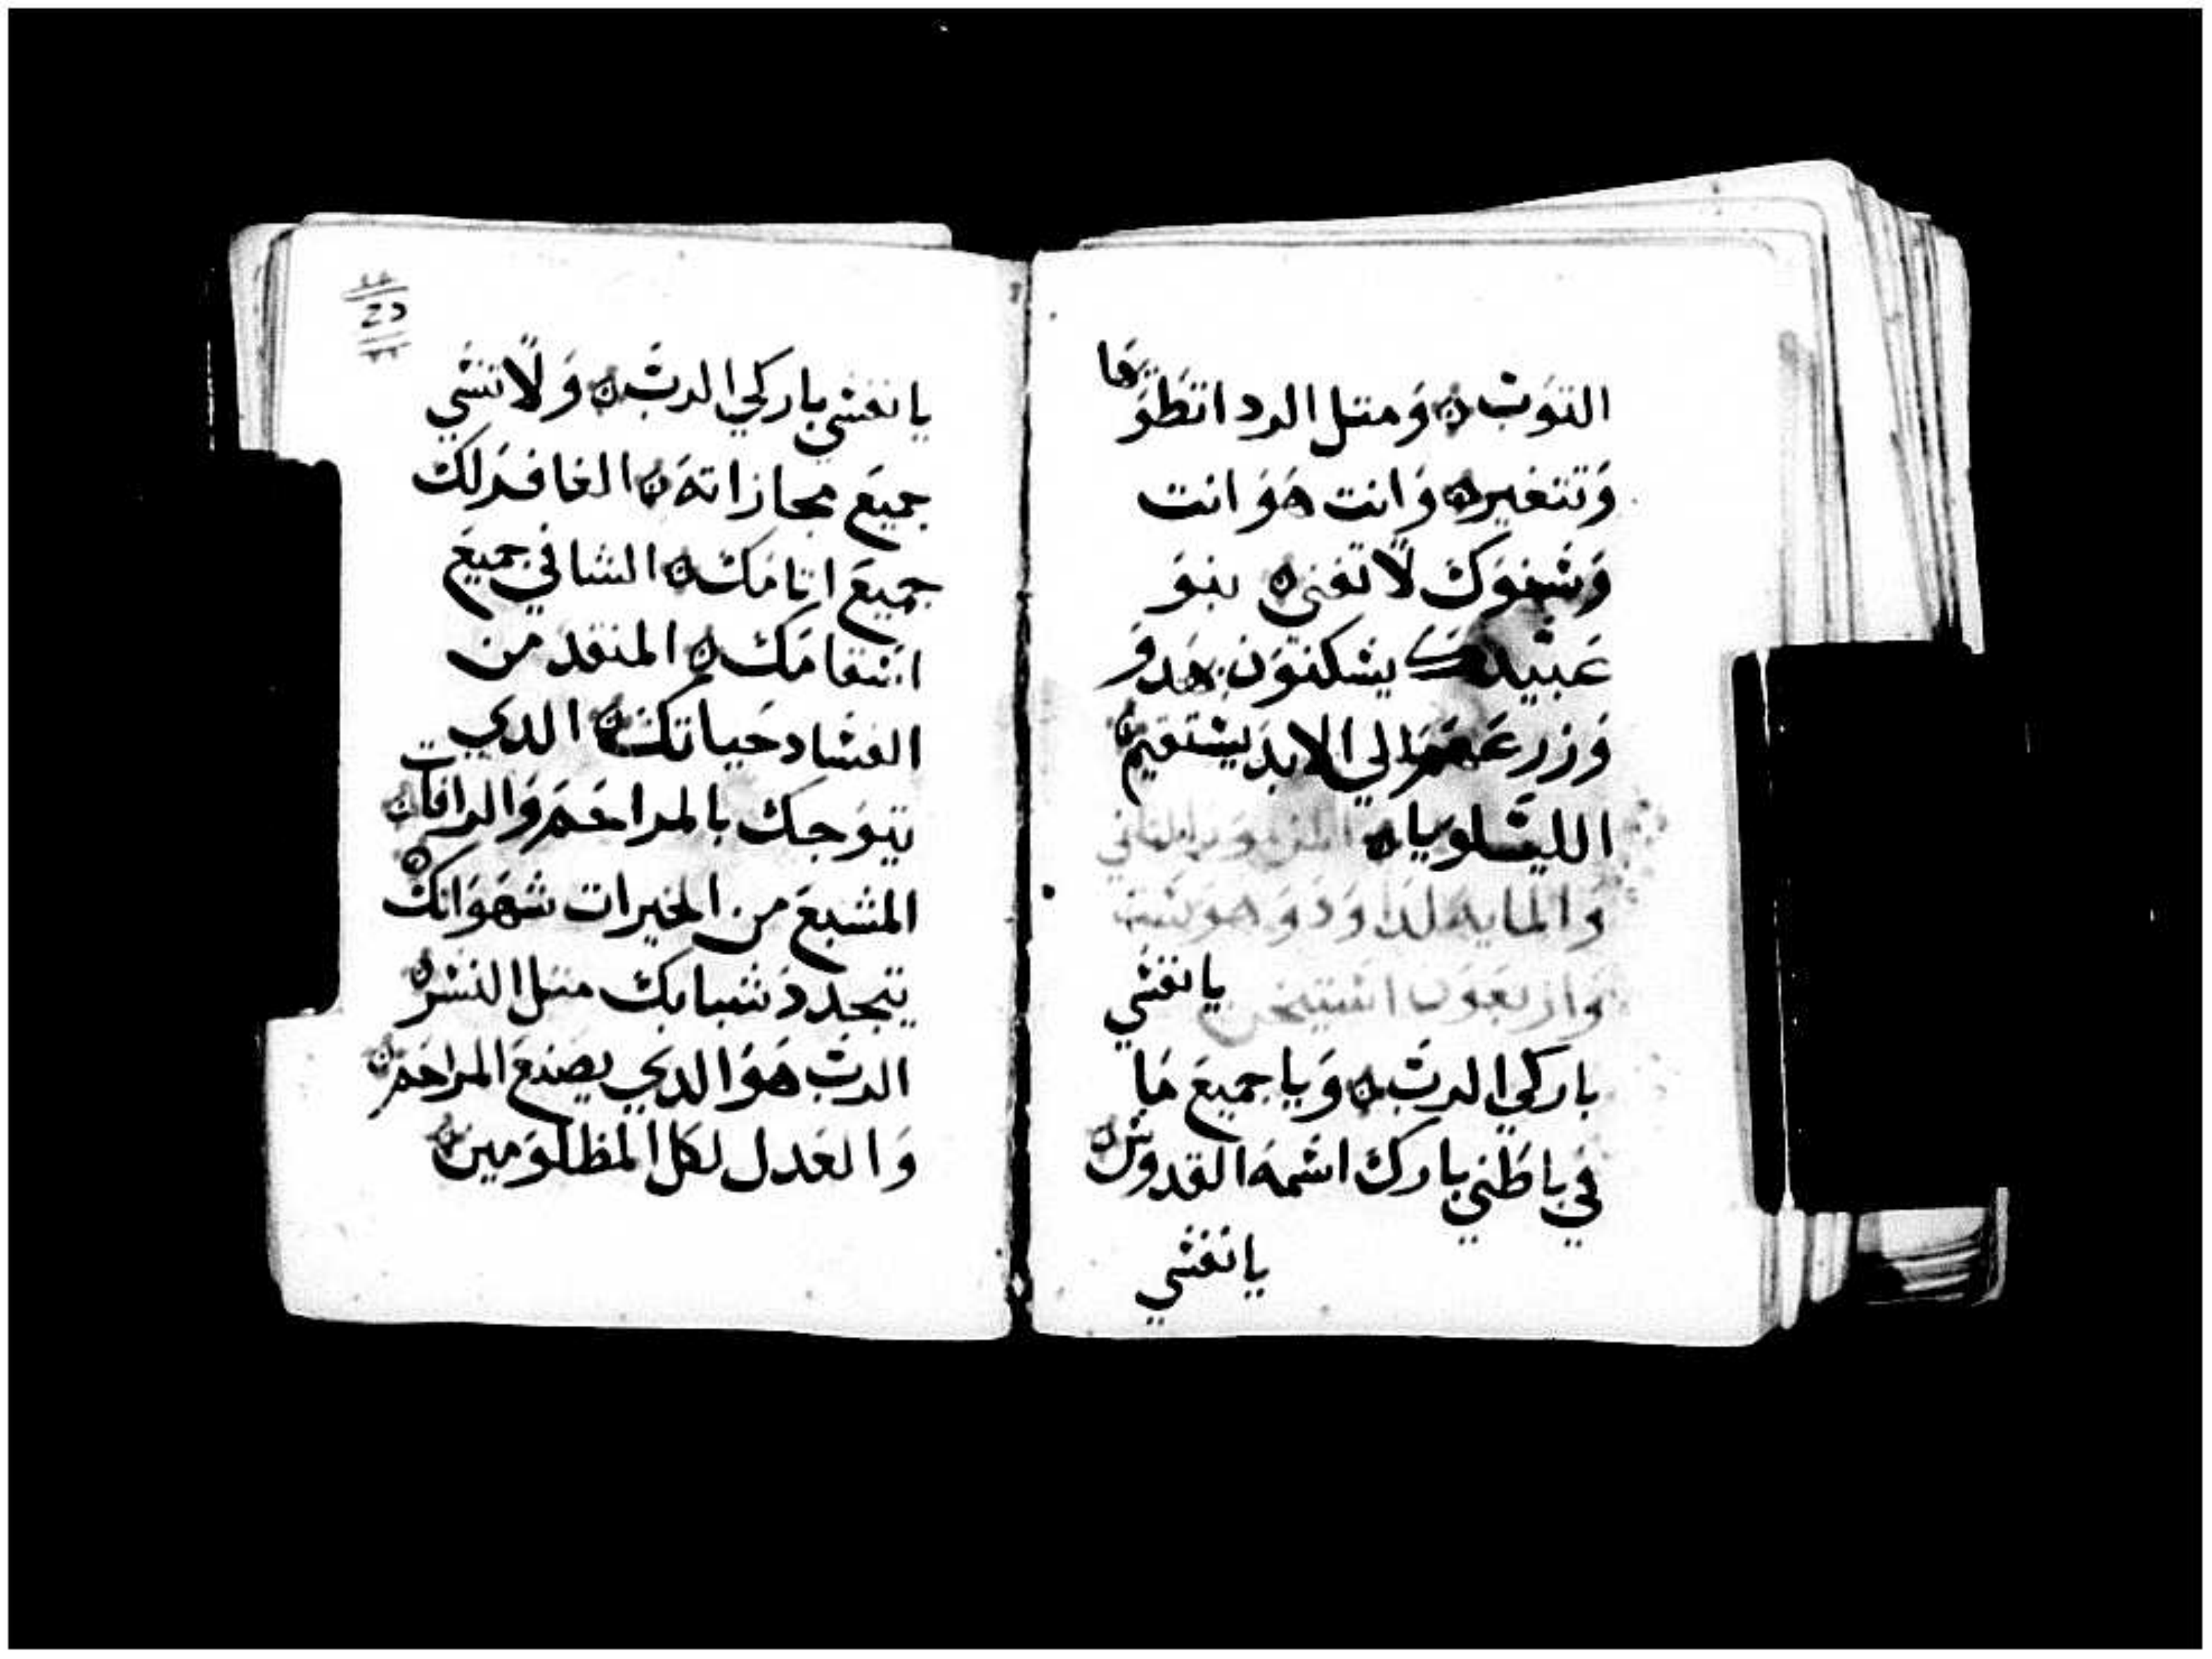 التوب ه ومتل الردا تطويها
وتتغير ه وانت هو انت
وسنوك لا تفني ه بنو
عبيدك يسكنون هدو
وزرعهم الي الابد يستقيم ه
الليلويا ه المزمور
والمايه لداود وهو
واربعون استيخن يا نفسي
باركي الرب ه ويا جميع ما
في باطني بارك اسمه القدوس ه
يا نفسي
يا نفسي باركي الرب ه ولا تنسي
جميع مجازاته ه الغافر لك
جميع اتامك ه الشافي جميع
اسقامك ه المنقد من
الفساد حياتك ه الدي
يتوجك بالمراحم والرافات ه
المشبع من الخيرات شهواتك ه
يتجدد شبابك متل النسر ه
الرب هو الدي يصنع المراحم ه
والعدل لكل المظلومين ه